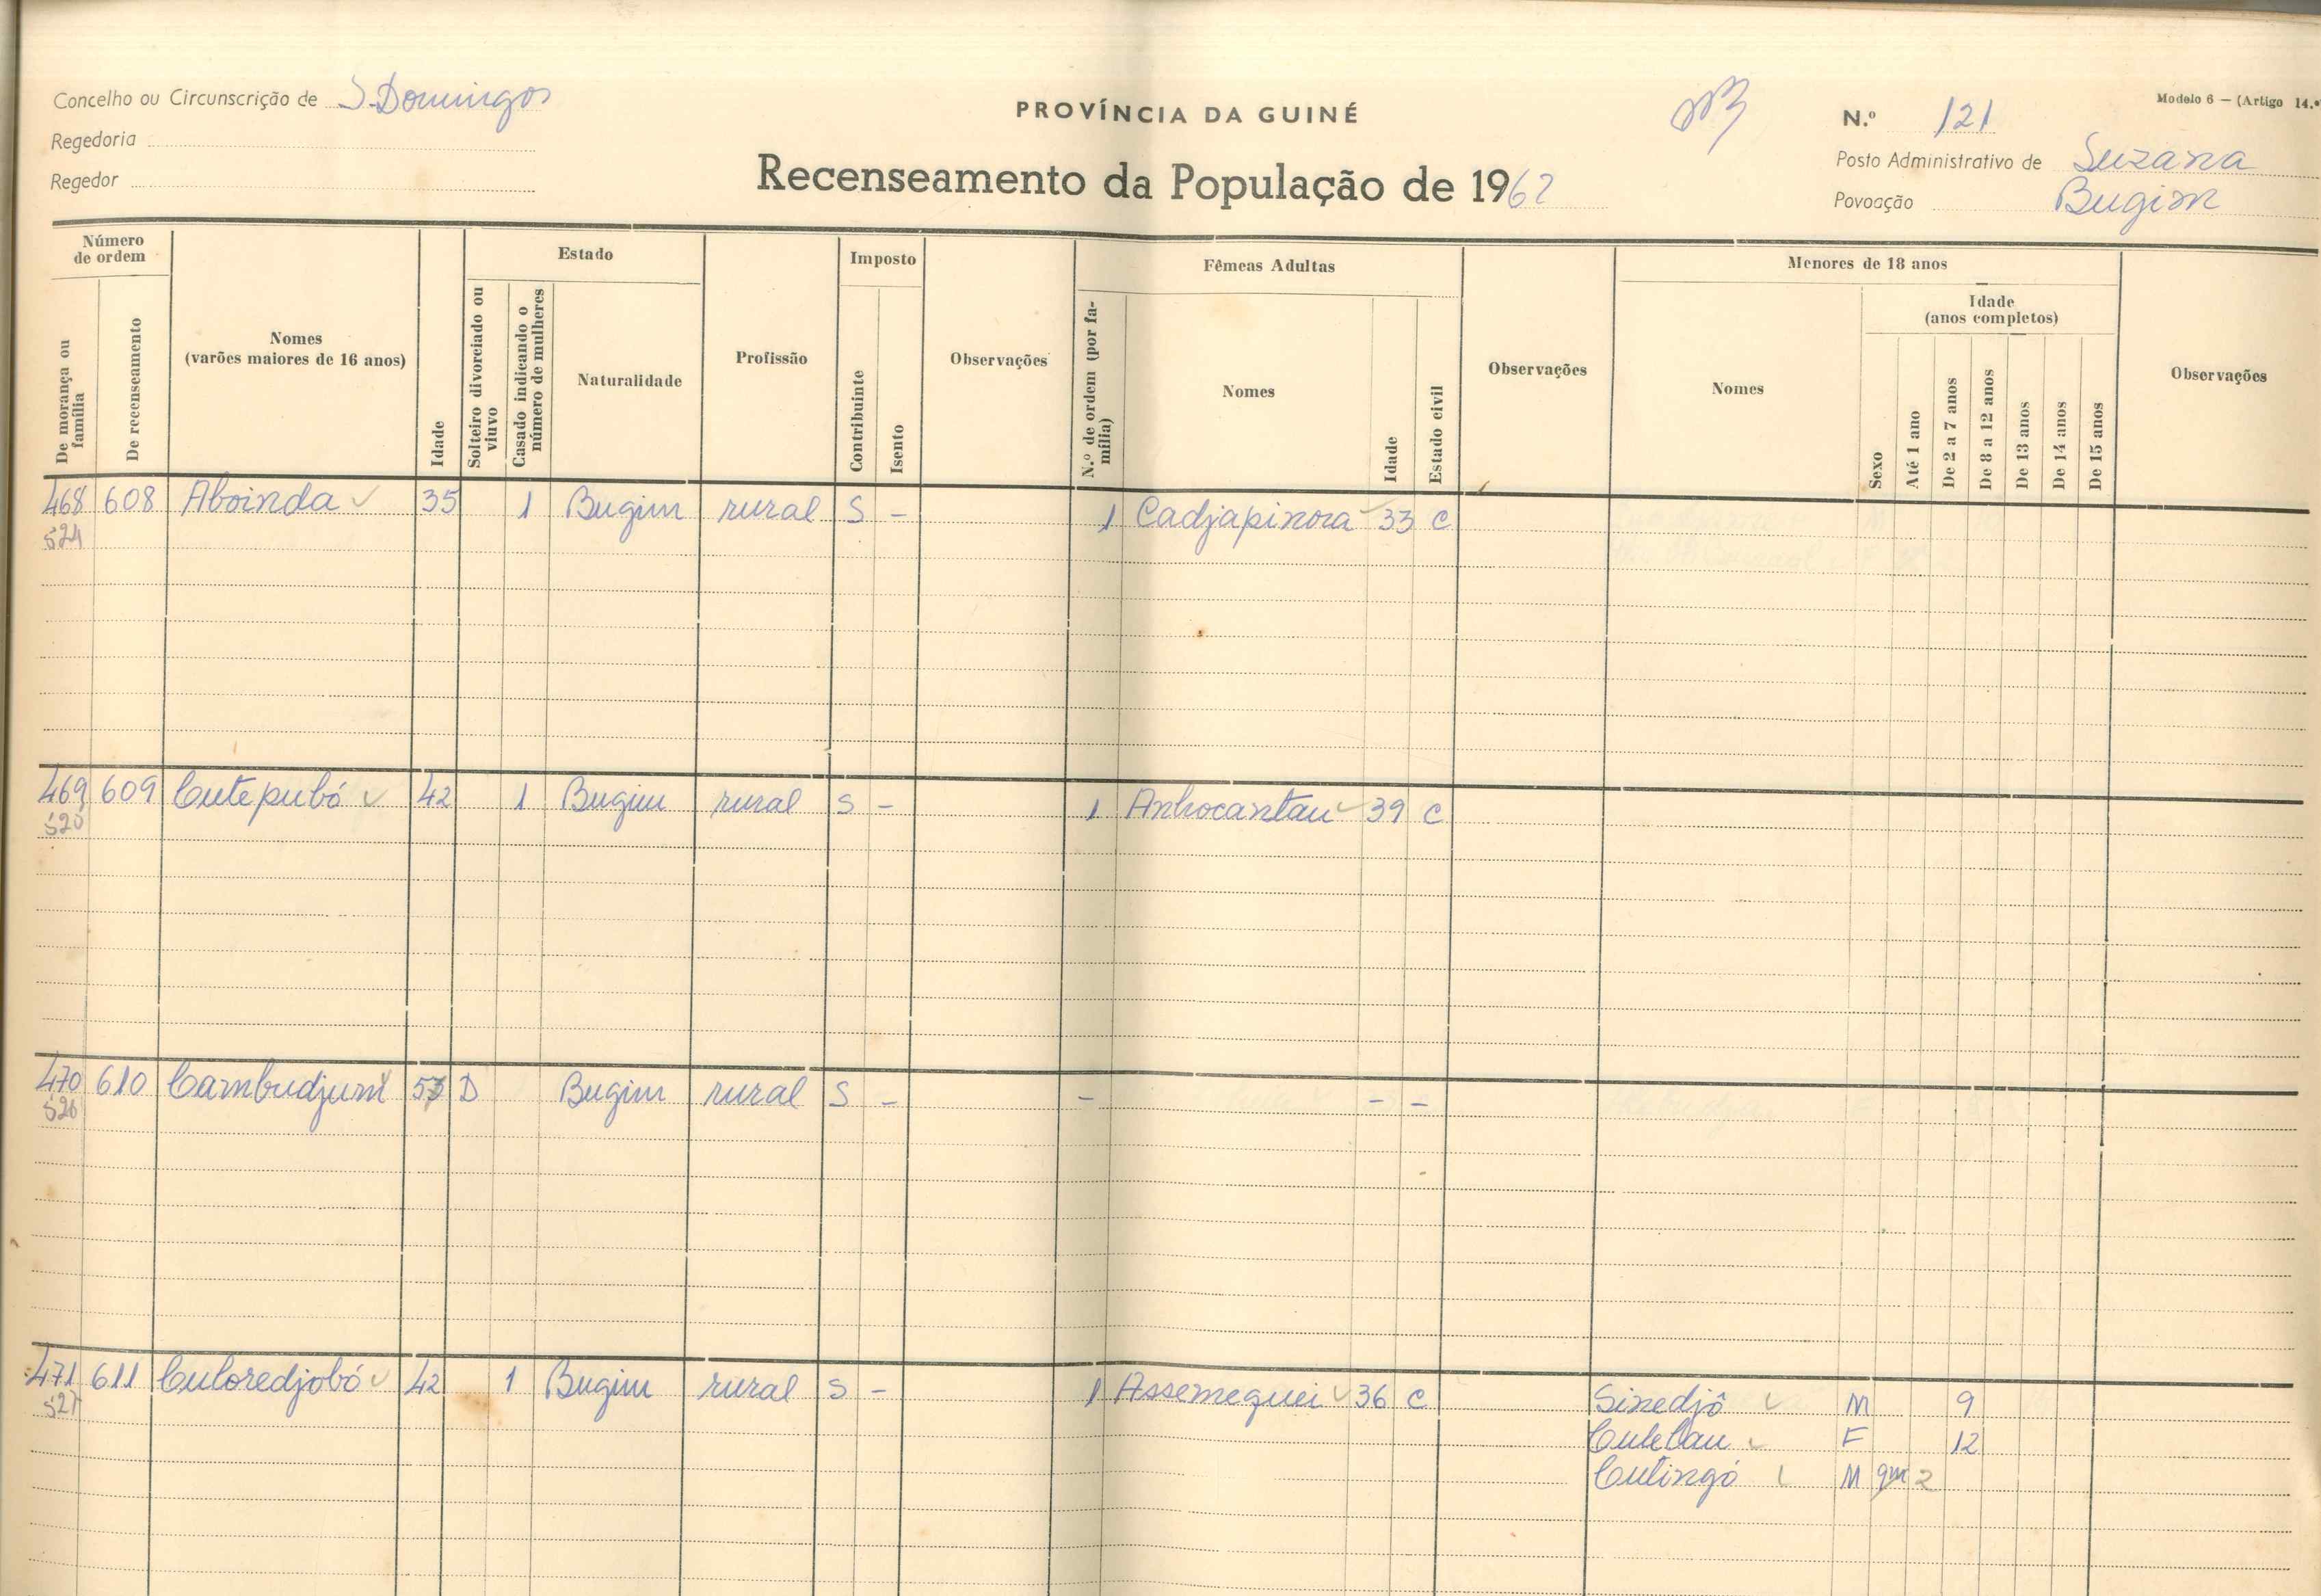 Concelho ou Circunscrição de S. Domingos
Regedoria
Regedor
PROVÍNCIA DA GUINÉ
Recenseamento da População de 1962
Modelo 6 — (Artigo 14.º
N.º 121
Posto Administrativo de Suzana
Povoação Bugim
Número de ordem
De morança ou família
De recenseamento
Nomes
(varões maiores de 16 anos)
Idade
Estado
Solteiro divorciado ou viuvo
Casado indicando o número de mulheres
Naturalidade
Profissão
Imposto
Contribuinte
Isento
Observações
Fêmeas Adultas
N.º de ordem (por família)
Nomes
Idade
Estado civil
Observações
Menores de 18 anos
Nomes
Sexo
Idade
(anos completos)
Até 1 ano
De 2 a 7 anos
De 8 a 12 anos
De 13 anos
De 14 anos
De 15 anos
Observações
468 608 Aboinda 35 1 Bugim rural S - 1 Cadjapinora 33 C
524
469 609 Cutepubó 42 1 Bugim rural S - 1 Anhocantau 39 C
525
470 610 Cambudjum D Bugim rural S - - - -
526
471 611 Culoredjobó 42 1 Bugim rural S - 1 Assemequei 36 C Sinedjô M 9
527
F 12
Cutingó M 2